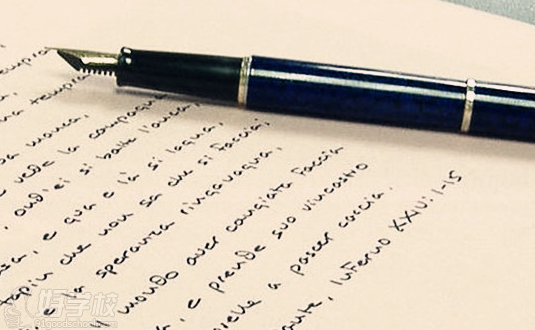 tempra,
manca,
vede la campagna
, ond'ei si batte l'anca,
e qua e là si lagna,
tapin che non sa che si faccia;
la speranza ringavagna,
mondo aver cangiata faccia
, e prende suo vincastro
a pascer caccia.
Inferno XXIV: 1-15
好学校